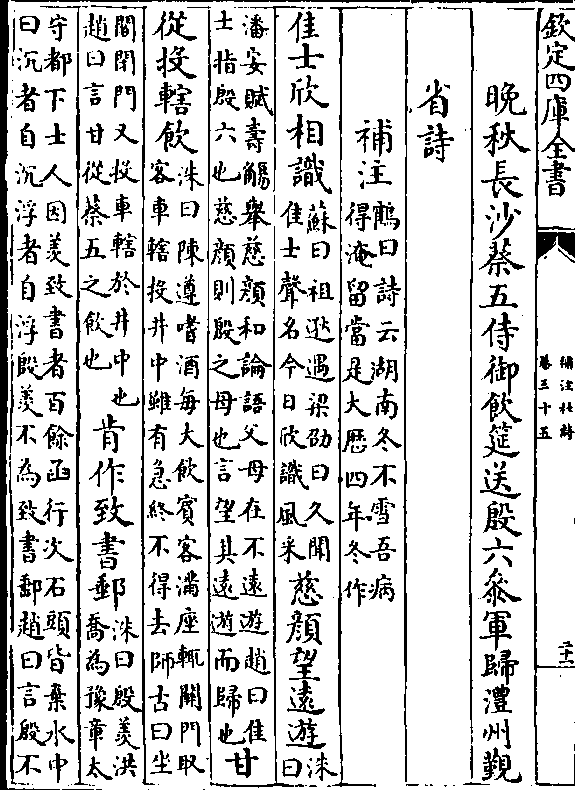 欽定四庫全書
補注杜詩
卷三十五
晚秋長沙蔡五侍御飲筵送殷六叅軍歸澧州覲
省詩
補注
鶴曰詩云湖南冬不雪吾病
得淹留當是大厯四年冬作
佳士欣相識
蘇曰祖逖遇梁劭曰久聞
佳士聲名今日欣識風采
慈顔望遠遊
洙曰
潘安賦壽觴舉慈顔和論語父母在不遠遊趙曰佳
士指殷六也慈顔則殷之母也言望其遠遊而歸也
甘
從投轄飲
洙曰陳遵嗜酒每大飲賓客滿座輒關門取
客車轄投井中雖有急終不得去師古曰坐
閉門又投車轄於井中也
趙曰言甘從蔡五之飲也
肯作致書郵
洙曰殷羨洪
喬為豫章太
守都下士人因羨致書者百餘函行次石頭皆棄水中
曰沉者自沉浮者自浮殷羨不為致書郵趙曰言殷不